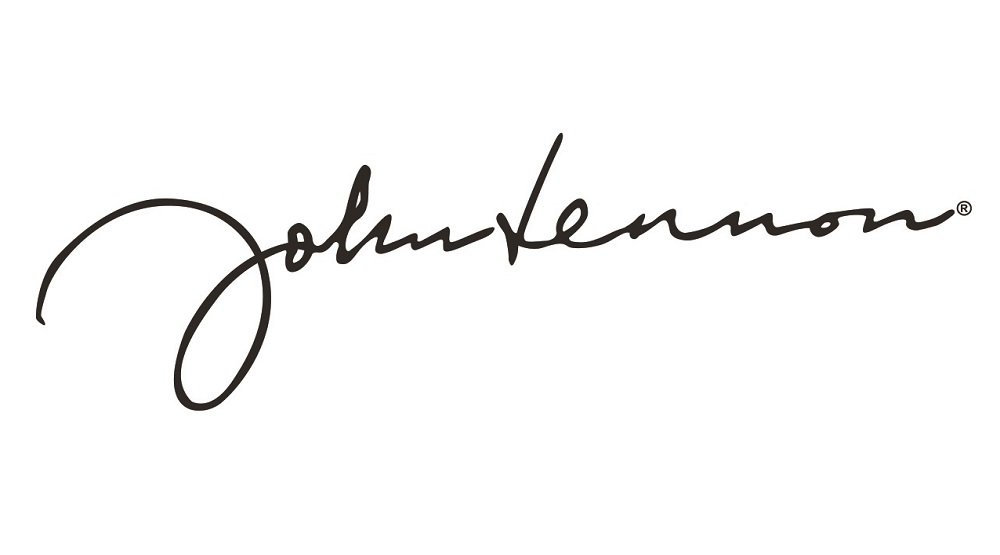 John Lennon®